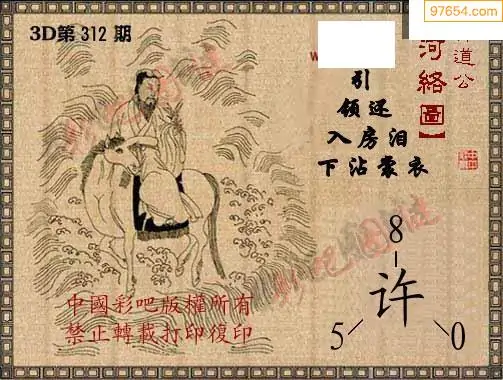 97654.com
3D第 312 期
道公
河络圖】
引
领还
入房泪
下沾裳衣
8
许
5
0
中國彩吧版權所有
禁止轉載打印復印